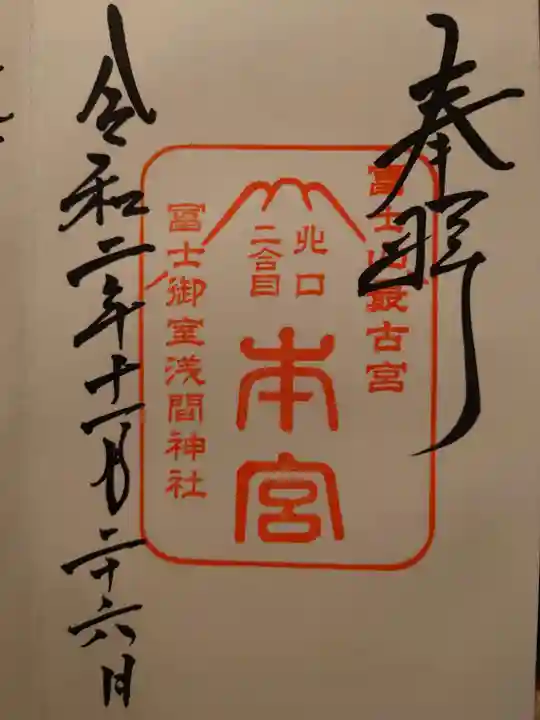 奉拝
富士山最古宮
北口
二合目
本宮
冨士御室浅間神社
令和二年十一月二十六日